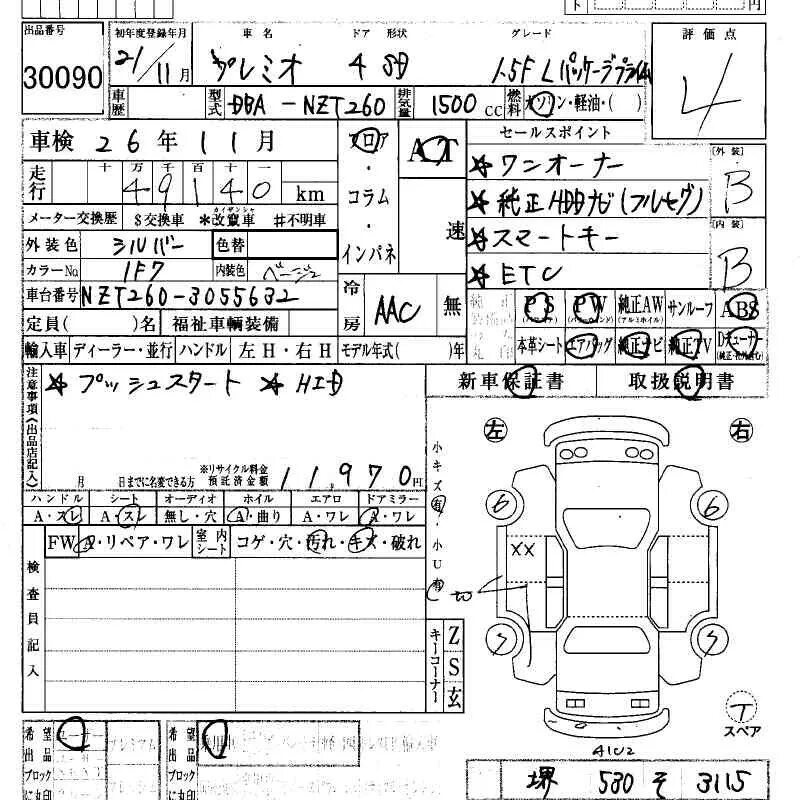 出品番号 初年度登録年月 車名 ドア 形状 グレード 評価点
30090 21/11月 プレミオ 4 SD 1.5F Lパッケージプライム 4
車歴 型式 DBA-NZT260 排気量 1500cc 燃料 ガソリン・軽油・( )
車検 26年11月 フロア・コラム・インパネ AT 速 セールスポイント
☆ワンオーナー [外装] B
走行 十万千百十一 49140 km
☆純正HDDナビ(フルセグ)
メーター交換歴 $交換車 *改竄車 #不明車
カイザンシャ
☆スマートキー [内装] B
外装色 シルバー 色替
☆ETC
カラーNo. 1F7 内装色 ベージュ
車台番号 NZT260-3055632 冷房 AAC 無
PS PW 純正AW サンルーフ ABS
(アルミホイル)
定員( )名 福祉車輌装備
本革シート エアバッグ 純正ナビ 純正TV Dオーナー
輸入車 ディーラー・並行 ハンドル 左H・右H モデル年式( )年
注意事項(出品店記入) ☆プッシュスタート ☆HID
新車保証書 取扱説明書
月 日までに名変できる方 ※リサイクル料金預託済金額 11,970円
ハンドル シート オーディオ ホイル エアロ ドアミラー
A・スレ A・スレ 無し・穴 A・曲り A・ワレ A・ワレ
FW A・リペア・ワレ 室内シート コゲ・穴・汚れ・キズ・破れ
検査員記入
小キズ有・小U有
左 右
6 6
XX
7 7
キーコーナー Z S 玄
T
スペア
A1U2
希望出品ブロックに丸印 ユーザー プレミアム
希望出品ブロックに丸印
堺 530 そ 3115